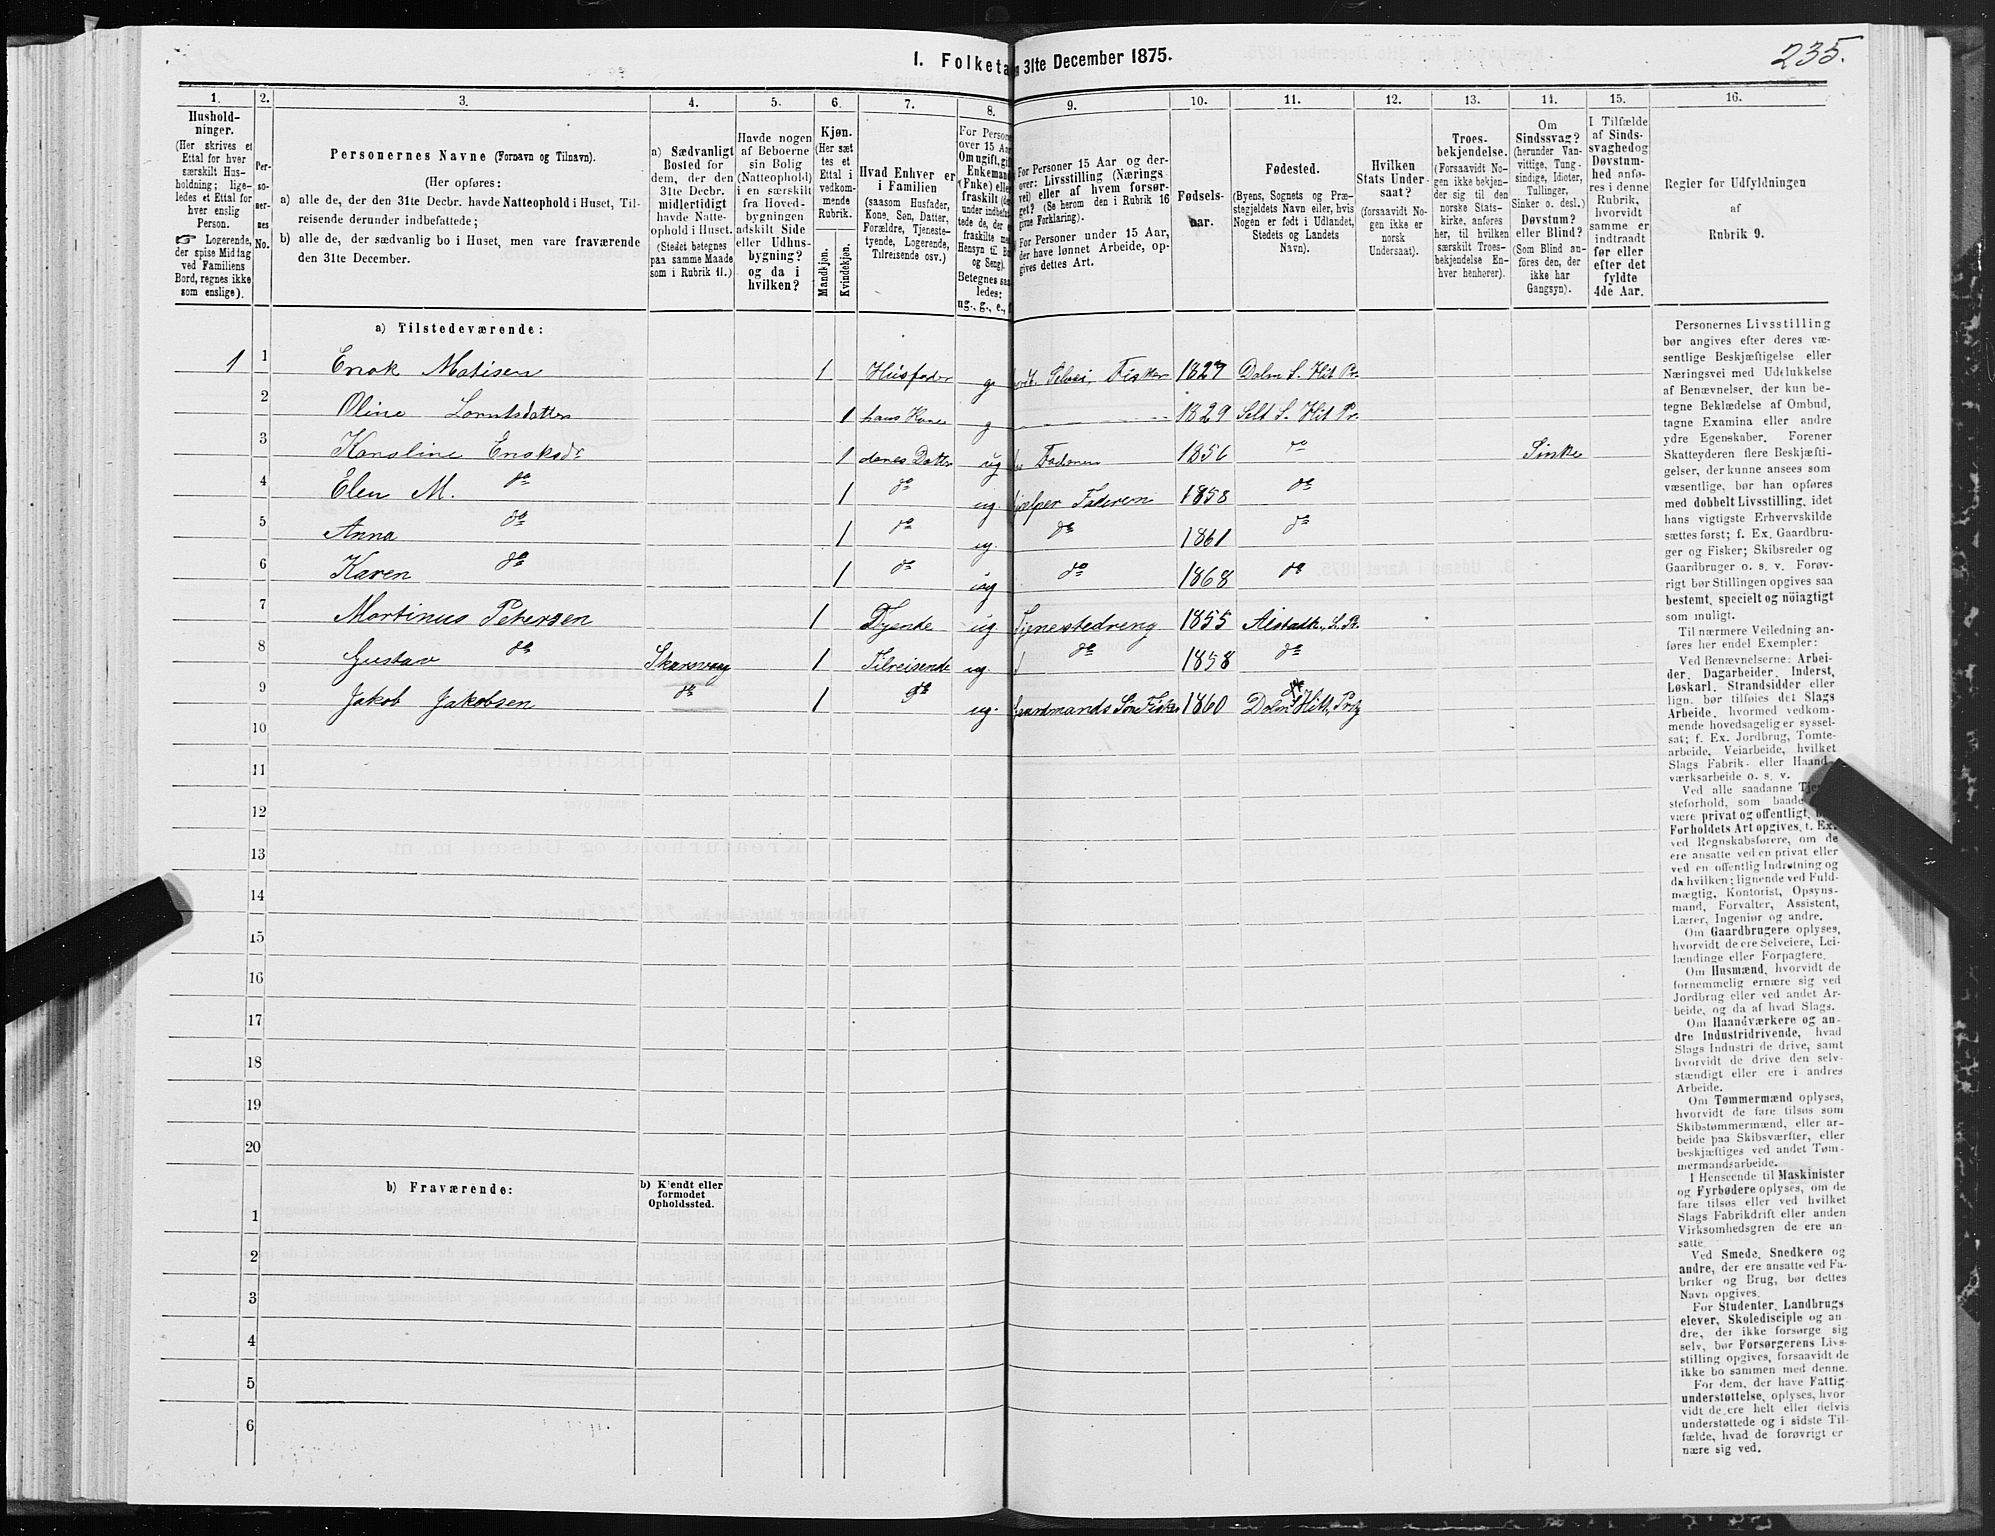 235.
I. Folketa 31te December 1875.
1. 2. 3. 4. 5. 6. 7. 8. 9. 10. 11. 12. 13. 14. 15. 16.
Hushold-
ninger.
(Her skrives et
Ettal for hver
særskilt Hus-
holdning; lige-
ledes et Ettal for
hver enslig
Person.
☞ Logerende,
der spise Middag
ved Familiens
Bord, regnes ikke
som enslige).
Per-
so-
ner-
nes
No.
Personernes Navne (Fornavn og Tilnavn).
(Her opføres:
a) alle de, der den 31te Decbr. havde Natteophold i Huset, Til-
reisende derunder indbefattede;
b) alle de, der sædvanlig bo i Huset, men vare fraværende
den 31te December.
a) Sædvanligt
Bosted for
dem, der den
31te Decbr.
midlertidigt
havde Natte-
ophold i Huset.
(Stedet betegnes
paa samme Maade
som i Rubrik 11.)
Havde nogen
af Beboerne
sin Bolig
(Natteophold)
i en særskilt
fra Hoved-
bygningen
adskilt Side
eller Udhus-
bygning?
og da i
hvilken?
Kjøn.
(Her sæt
tes et
Ettal i
vedkom-
mende
Rubrik.
Mandkjøn.
Kvindekjøn.
Hvad Enhver er
i Familien
(saasom Husfader,
Kone, Søn, Datter,
Forældre, Tjeneste-
tyende, Logerende,
Tilreisende osv.)
For Person
over 15 Aar
Om ugift, gift
Enkemand
(Enke) eller
fraskilt (de
under indbefat
tede de, der e
fraskilte me
Hensyn til Bo
og Seng).
Betegnes saa
ledes:
ug., g., e.,
For Personer 15 Aar og der-
over: Livsstilling (Nærings
vei) eller af hvem forsør-
get? (Se herom den i Rubrik 16
givne Forklaring).
For Personer under 15 Aar,
der have lønnet Arbeide, op-
gives dettes Art.
Fødsels-
aar.
Fødested.
(Byens, Sognets og Præ-
stegjeldets Navn eller, hvis
Nogen er født i Udlandet,
Stedets og Landets
Navn).
Hvilken
Stats Under-
saat?
(forsaavidt No-
gen ikke er
norsk
Undersaat).
Troes-
bekjendelse.
(Forsaavidt No-
gen ikke bekjen-
der sig til den
norske Stats-
kirke, anføres
her, til hvilken
særskilt Troes-
bekjendelse En-
hver henhører).
Om
Sindssvag?
(herunder Van-
vittige, Tung-
sindige, Idioter,
Tullinger,
Sinker o. desl.)
Døvstum?
eller Blind?
(Som Blind an-
føres den, der
ikke har
Gangsyn).
I Tilfælde
af Sinds-
svaghed og
Døvstum-
hed anfø-
res i denne
Rubrik,
hvorvidt
samme er
indtraadt
før eller
efter det
fyldte
4de Aar.
Regler for Udfyldningen
af
Rubrik 9.
a) Tilstedeværende:
1 1 Enok Matisen 1 Husfader g Selvei, Fisker 1827 Dolm S. Hit Pr
2 Oline Lorntsdatter 1 hans Kone g 1829 Selt S. Hit Pr
3 Karoline Enoksdr 1 deres Datter ug Faderen 1856 do Sinke
4 Elen M. do 1 do ug jelper Faderen 1858 do
5 Anna do 1 do ug. do 1861 do
6 Karen do 1 do ug do 1868 do
7 Martinus Petersen 1 Tyende ug Tjenestedreng 1855
8 Gustav do Skarsvaag 1 Tilreisende ug. do 1858 do
9 Jakob Jakobsen do 1 do ug. aardmands Søn Fisker 1860 Dolm Hitt. Prg
10
11
12
13
14
15
16
17
18
19
20
b) Fraværende:
b) Kjendt eller
formodet
Opholdssted.
1
2
3
4
5
6
Personernes Livsstilling
bør angives efter deres væ-
sentlige Beskjæftigelse eller
Næringsvei med Udelukkelse
af Benævnelser, der kun be-
tegne Beklædelse af Ombud,
tagne Examina eller andre
ydre Egenskaber. Forener
Skatteyderen flere Beskjæfti-
gelser, der kunne ansees som
væsentlige, bør han opføres
med dobbelt Livsstilling, idet
hans vigtigste Erhvervskilde
sættes først; f. Ex. Gaardbru-
ger og Fisker; Skibsreder og
Gaardbruger o. s. v. Forøv-
rigt bør Stillingen opgives saa
bestemt, specielt og nöiagtigt
som muligt.
Til nærmere Veiledning an-
føres her endel Exempler:
Ved Benævnelserne: Arbei-
der, Dagarbeider, Inderst,
Løskarl, Strandsidder eller
lign. bør tilføies det Slags
Arbeide, hvormed vedkom-
mende hovedsagelig er syssel-
sat; f. Ex. Jordbrug, Tomte-
arbeide, Veiarbeide, hvilket
Slags Fabrik- eller Haand-
værksarbeide o. s. v.
Ved alle saadanne Tje
steforhold, som baade
være privat og offentligt,
Forholdets Art opgives, t. Ex.
ved Regnskabsførere, om de
ere ansatte ved en privat eller
ved en offentlig Indretning og
da hvilken; lignende ved Fuld-
mægtig, Kontorist, Opsyns-
mand, Forvalter, Assistent,
Lærer, Ingeniør og andre.
Om Gaardbrugere oplyses,
hvorvidt de ere Selveiere, Lei-
lændinge eller Forpagtere.
Om Husmænd, hvorvidt de
fornemmelig ernære sig ved
Jordbrug eller ved andet Ar-
beide, og da af hvad Slags.
Om Haandværkere og an-
dre Industridrivende, hvad
Slags Industri de drive, samt
hvorvidt de drive den selv-
stændigt eller ere i andres
Arbeide.
Om Tømmermænd oplyses,
hvorvidt de fare tilsøs som
Skibstømmermænd, eller ar-
beide paa Skibsværfter, eller
beskjæftiges ved andet Tøm-
mermandsarbeide.
I Henseende til Maskinister
og Fyrbødere oplyses, om de
fare tilsøs eller ved hvilket
Slags Fabrikdrift eller anden
Virksomhedsgren de ere an-
satte.
Ved Smede, Snedkere og
andre, der ere ansatte ved Fa-
briker og Brug, bør dettes
Navn opgives.
For Studenter, Landbrugs
elever, Skoledisciple og an-
dre, der ikke forsørge sig
selv, bør Forsørgerens Livs-
stilling opgives, forsaavidt de
ikke bo sammen med denne.
For dem, der have Fattig-
understøttelse, oplyses, hvor
vidt de ere helt eller delvis
understøttede og i sidste Til-
fælde, hvad de forøvrigt er
nære sig ved.